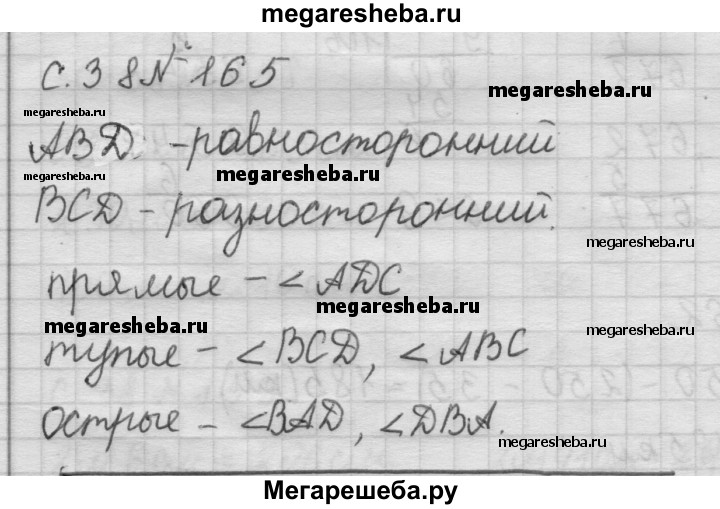 megaresheba.ru
с.38 № 165
megaresheba.ru
megaresheba.ru
ABD. - равносторонний
megaresheba.ru
megaresheba.ru
BCD - разносторонний.
megaresheba.ru
прямые - ∠ADC
megaresheba.ru
megaresheba.ru
megaresheba.ru
тупые - ∠BCD, ∠ABC
острые - ∠BAD, ∠DBA.
megaresheba.ru
Мегарешеба.ру